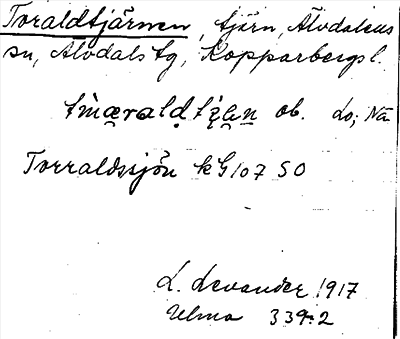 Toraldtjärnen, tjärn, Älvdalens
sn, Älvdals tg, Kopparbergs l.
ob. Lo; Nä
Torraldssjön kG 107 SO
L. Levander 1917
Ulma 339:2